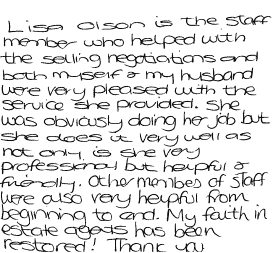 Lisa Olson is the staff
member who helped with
the selling negotiations and
both myself & my husband
were very pleased with the
service she provided. She
was obviously doing her job but
she does it very well as
not only is she very
professional but helpful &
friendly. Other members of staff
were also very helpful from
beginning to end. My faith in
estate agents has been
restored! Thank you